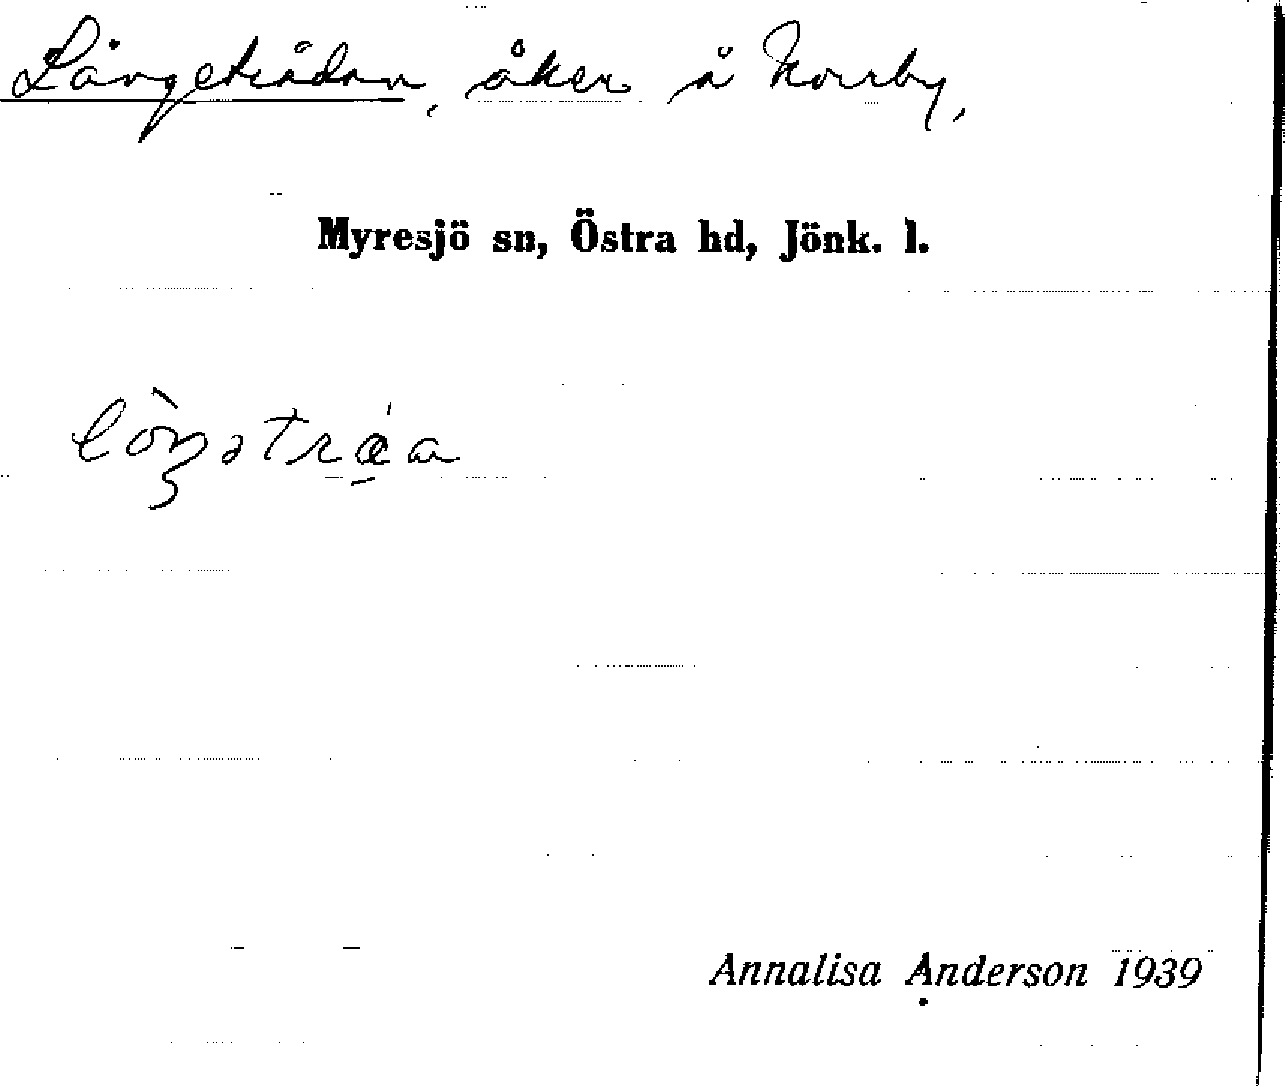 Långeträdan, åker å Norrby,
Myresjö sn, Östra hd, Jönk. l.
Annalisa Anderson 1939